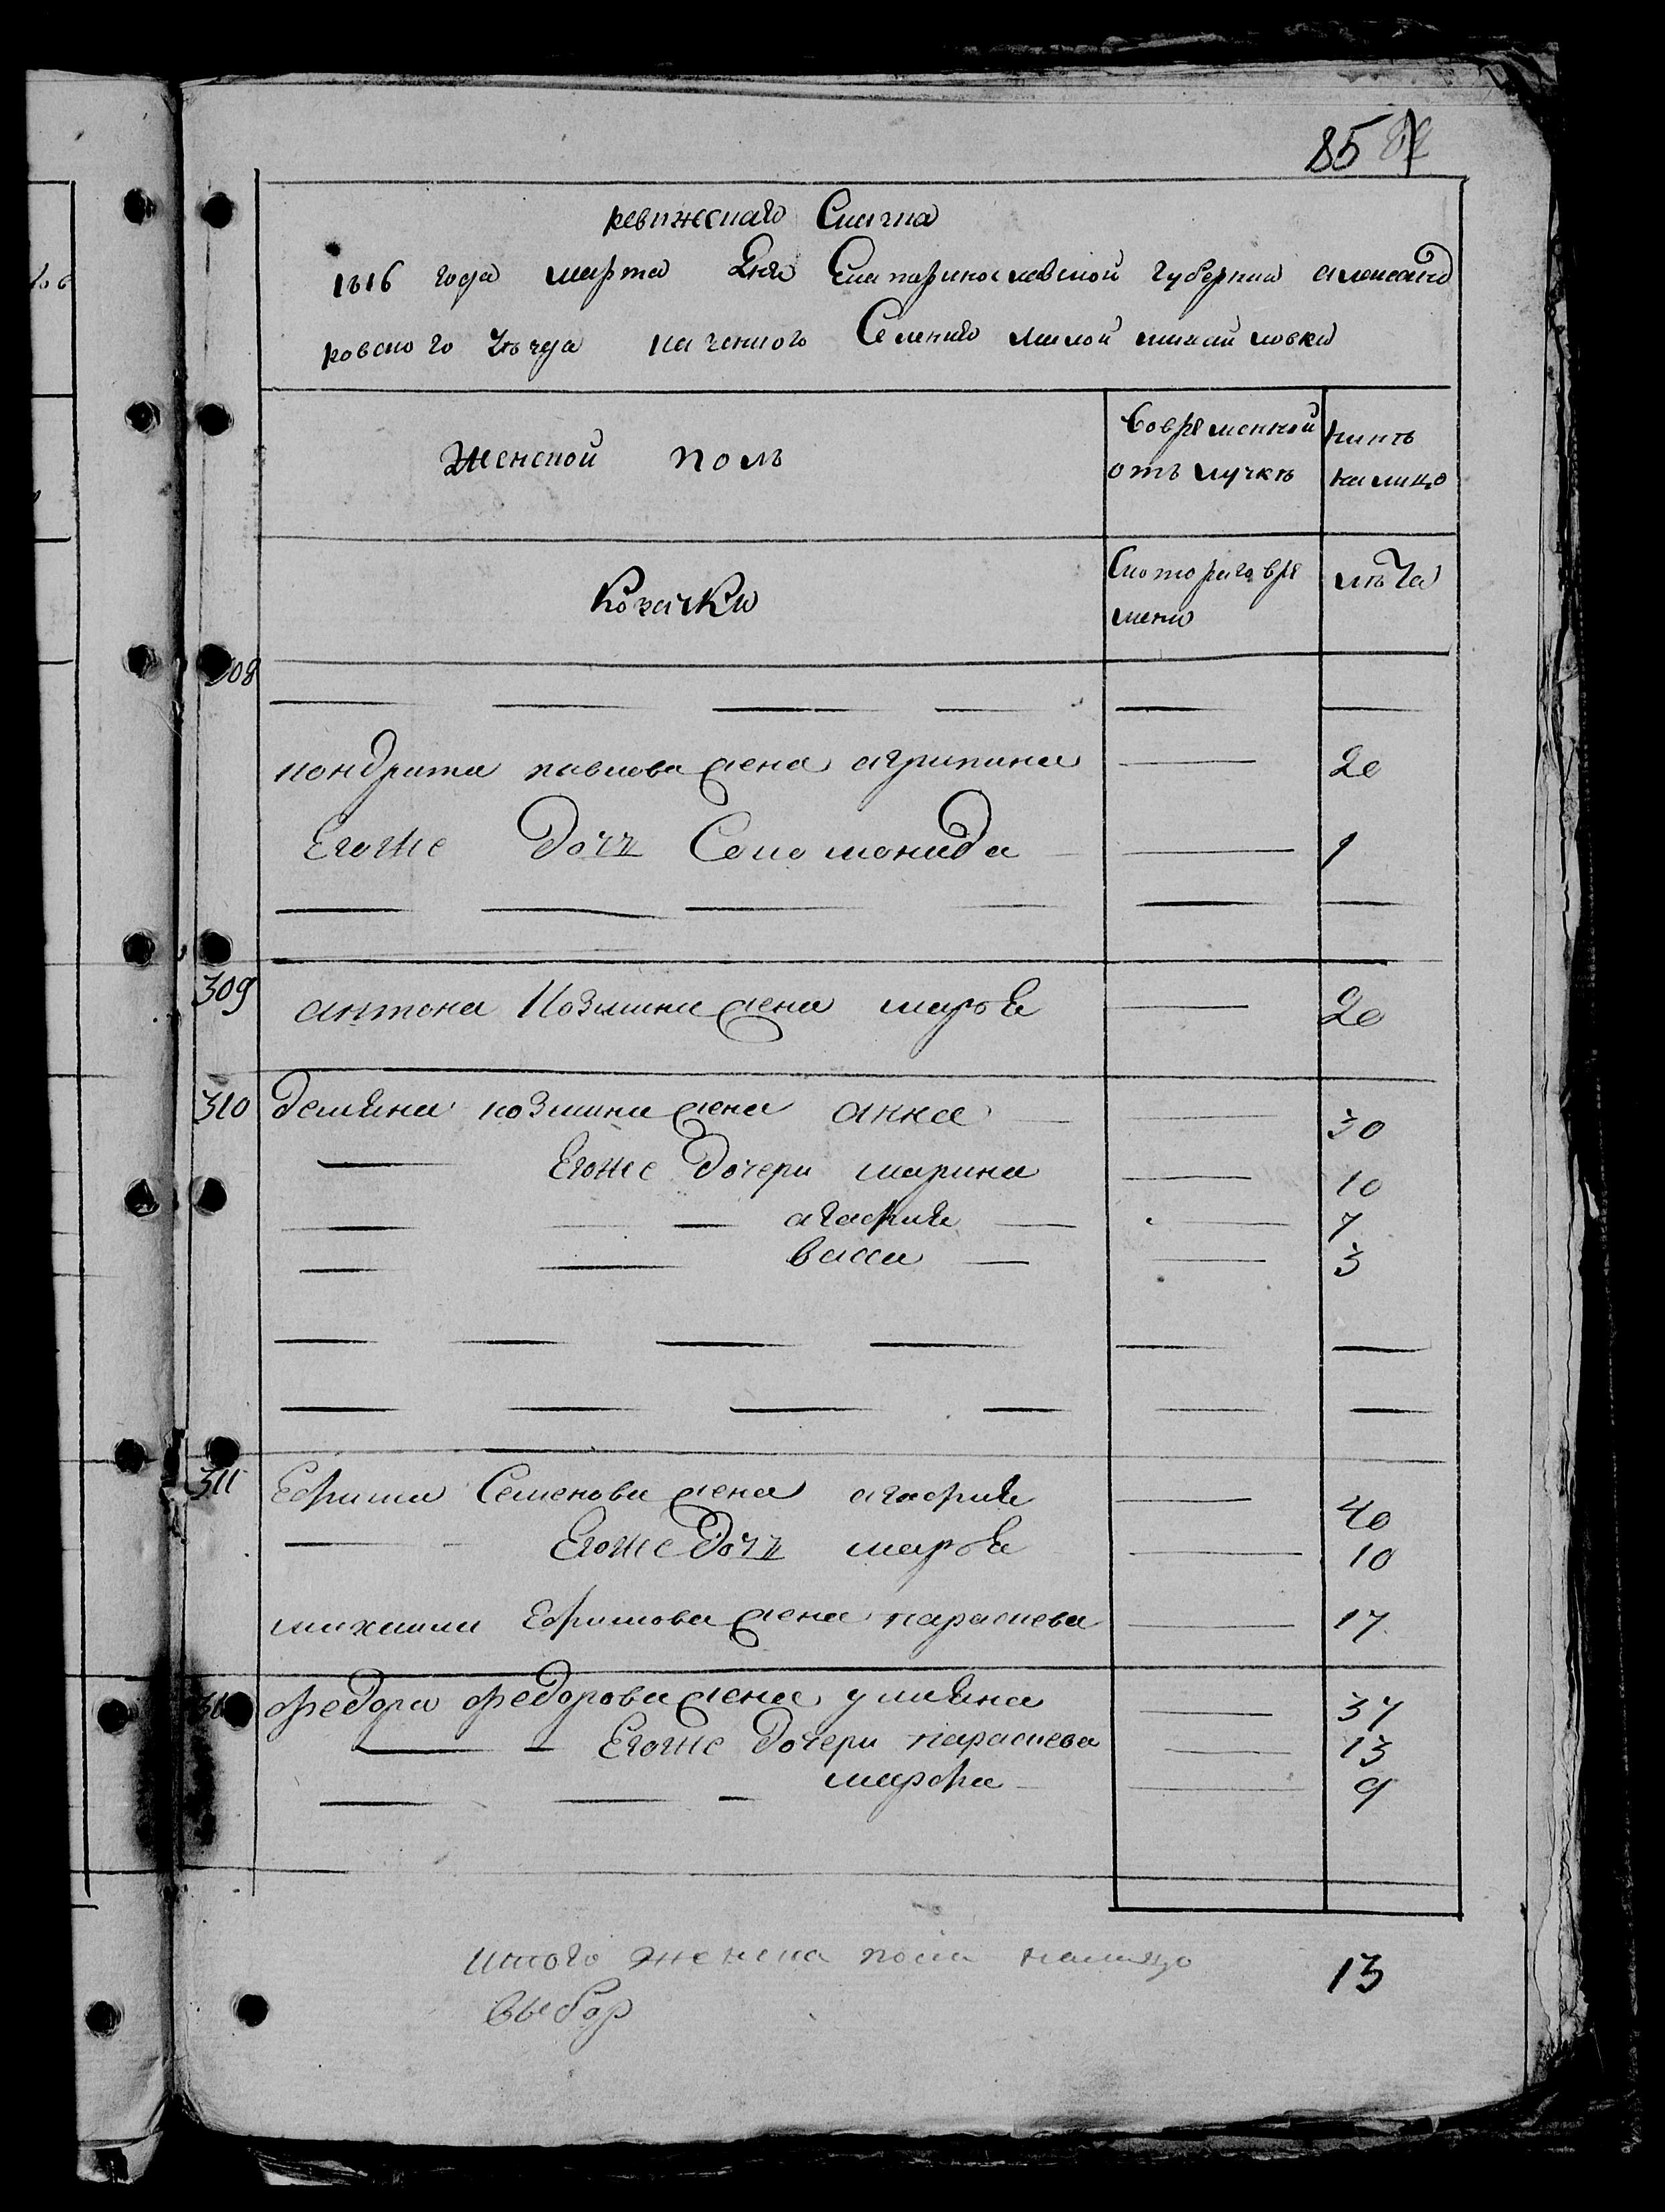 85
ревижскаго Спичка
1816 года марта дня Екатеринославской губернии александ
ровского Уъзда казенного Селения малой михайловки
Женской полъ
Во временной отълучкъ
нинъ налицо
Козачки
Скоторага врѣ мени
лѣта
308
кондрата павлова жена агрипина 20
Егоже дочь Соломонида 1
309 антона Козмина жена марья 20
310 демяна козмина жена анна 30
Егоже дочери марина 10
агафия 7
васса 3
311 Ефима Семенова жена агафия 40
Егоже дочь марья 10
михаила Ефимова жена параскева 17
федора федорова жена улияна 37
Егоже дочери параскева 13
марфа 9
итого женска пола налицо 13
Выбор